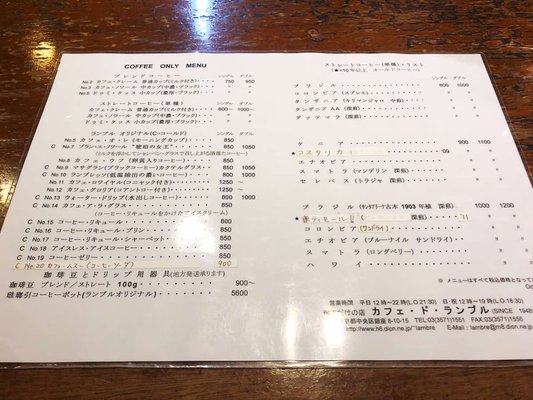 COFFEE ONLY MENU
ブレンドコーヒー
シングル ダブル
No.2 カフェ・クレーム 普通カップ(ミルク付き)・・・・ 750 950
No.3 カフェ・ノワール 中カップ(中濃・ブラック)・・・・
No.5 ドゥミ・タッス 小カップ(濃厚・ブラック)・・・・
ストレートコーヒー(単種)
シングル ダブル
カフェ・クレーム 普通カップ(ミルク付き)・・・・ 800～ 1000～
カフェ・ノワール 中カップ(中濃・ブラック)・・・・
ドゥミ・タッス 小カップ(濃厚・ブラック)・・・・
ランブル オリジナル(C=コールド)
シングル ダブル
No.5 カフェ・オ・レ(モーニングカップ)・・・・
C No.7 ブラン・エ・ノワール "琥珀の女王"・・・・ 850 1050
(ミルクを浮かしてシャンペン・グラスで召し上がる洒落たコーヒー)
No.8 カフェ・ウフ(卵黄入りコーヒー)・・・・
C No.9 マザグラン(ブラックコーヒーカクテルグラス)・・・・ 850 1050
C No.10 ランブレッソ(低温抽出の濃いコーヒー)・・・・ 800 1000
No.11 カフェ・ロワイヤル(コニャック付き)・・・・ 1250 ～
No.12 カフェ・グロリア(コアントロー付き)・・・・ 1250 ～
C No.13 ウォーター・ドリップ(水出しコーヒー)・・・・ 800 1000
C No.14 カフェ・ア・ラ・グラス・・・・ 850
(コーヒー・リキュールをかけたアイスクリーム)
C No.15 コーヒー・リキュール・・・・ 800
C No.16 コーヒー・リキュール・プリン・・・・
C No.17 コーヒー・リキュール・シャーベット・・・・
C No.18 アイスレス・アイスコーヒー・・・・
C No.19 コーヒーゼリー・・・・ 850
900
珈琲豆とドリップ用器具(地方発送承ります)
珈琲豆 ブレンド/ストレート 100g・・・・ 900～
琺瑯引コーヒーポット(ランブルオリジナル)・・・・ 5600
ストレートコーヒー(単種)・リスト
(★=10年以上 オールドコーヒー)
シングル ダブル
ブラジル・・・・ 800 1000
コロンビア(スプレモ)・・・・
タンザニア(キリマンジャロ 中煎)・・・・
タンザニア AA(深煎)・・・・
グァテマラ(深煎)・・・・
ケニア・・・・ 900 1100
★ コスタリカ 深煎) '09
エチオピア
スマトラ(マンデリン 深煎)・・・・
セレベス(トラジャ 深煎)・・・・
ブラジル 古木 1903年植 深煎) 1000 1200
★東ティモール 深煎) '11
コロンビア(サンドライ)・・・・
エチオピア(ブルーナイル サンドライ)・・・・
スマトラ(ロングベリー)・・・・
ハワイ
※ メニューはすべて税込価格となって
営業時間 平日 12時～22時(L.O.21:30) 日・祝 12時～19時(L.O.18:30)
だけの店 カフェ・ド・ランブル(SINCE 1948
京都中央区銀座 8-10-15 TEL:03(3571)1551 FAX:03(3571)1556
http://www.h6.dion.ne.jp/~lambre E-Mail : lambre@m8.dion.ne.jp